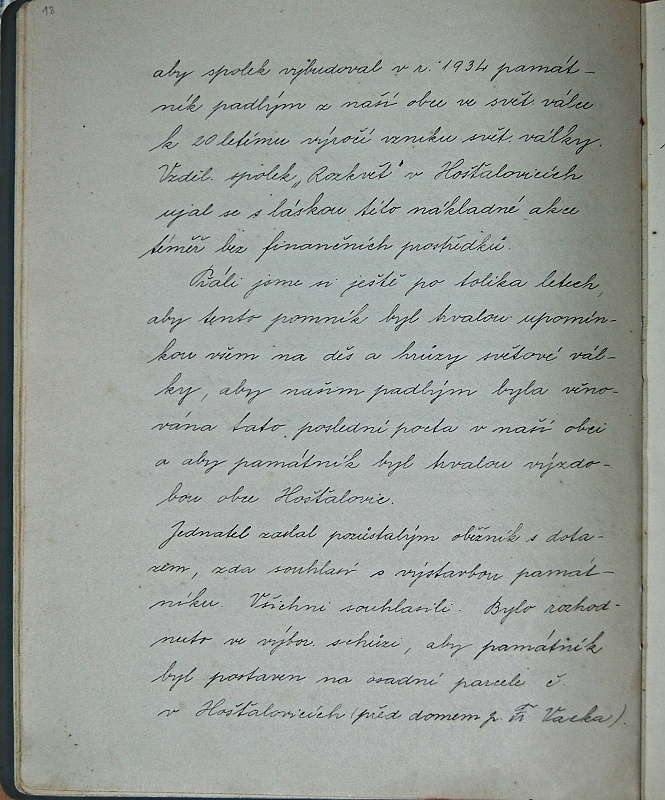 18
aby spolek vybudoval v r. 1934 památ-
ník padlým z naší obce ve svět. válce
k 20letému výročí vzniku svět. války.
Vzděl. spolek „Rozkvět" v Hošťalovicích
ujal se s láskou této nákladné akce
téměř bez finančních prostředků.
Přáli jsme si ještě po tolika letech,
aby tento pomník byl trvalou upomín-
kou všem na děs a hrůzy světové vál-
ky, aby našim padlým byla věno-
vána tato poslední pocta v naší obci
a aby památník byl trvalou výzdo-
bou obce Hošťalovic.
Jednatel zaslal pozůstalým oběžník s dota-
zem, zda souhlasí s výstavbou památ-
níku. Všichni souhlasili. Bylo rozhod-
nuto ve výbor. schůzi, aby památník
byl postaven na osadní parcele č.
v Hošťalovicích (před domem p. Fr. Vacka).